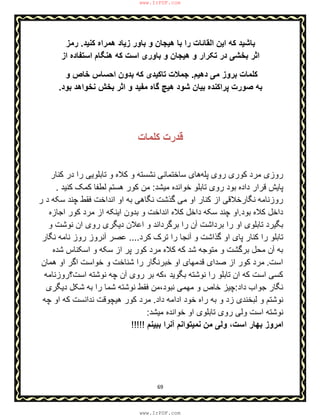 www.IrPDF.com
باشید که این القائات را با هیجان و باور زیاد همراه کنید. رمز
اثر بخشی در تکرار و هیجان و باوری است که هنگام استفاده از
کلمات بروز می دهیم. جملات تاکیدی که بدون احساس خاص و
به صورت پراکنده بیان شود هیچ گاه مفید و اثر بخش نخواهد بود.
قدرت کلمات
روزی مرد کوری روی پله‌های ساختمانی نشسته و کلاه و تابلویی را در کنار
پایش قرار داده بود روی تابلو خوانده میشد: من کور هستم لطفا کمک کنید .
روزنامه نگارخلاقی از کنار او می گذشت نگاهی به او انداخت فقط چند سکه د ر
داخل کلاه بود.او چند سکه داخل کلاه انداخت و بدون اینکه از مرد کور اجازه
بگیرد تابلوی او را برداشت آن را برگرداند و اعلان دیگری روی ان نوشت و
تابلو را کنار پای او گذاشت و آنجا را ترک کرد.... عصر آنروز روز نامه نگار
به ان محل برگشت و متوجه شد که کلاه مرد کور پر از سکه و اسکناس شده
است. مرد کور از صدای قدمهای او خبرنگار را شناخت و خواست اگر او همان
کسی است که ان تابلو را نوشته بگوید ،که بر روی آن چه نوشته است؟روزنامه
نگار جواب داد:چیز خاص و مهمی نبود،من فقط نوشته شما را به شکل دیگری
نوشتم و لبخندی زد و به راه خود ادامه داد. مرد کور هیچوقت ندانست که او چه
نوشته است ولی روی تابلوی او خوانده میشد:
امروز بهار است، ولی من نمیتوانم آنرا ببینم !!!!!
69
www.IrPDF.com